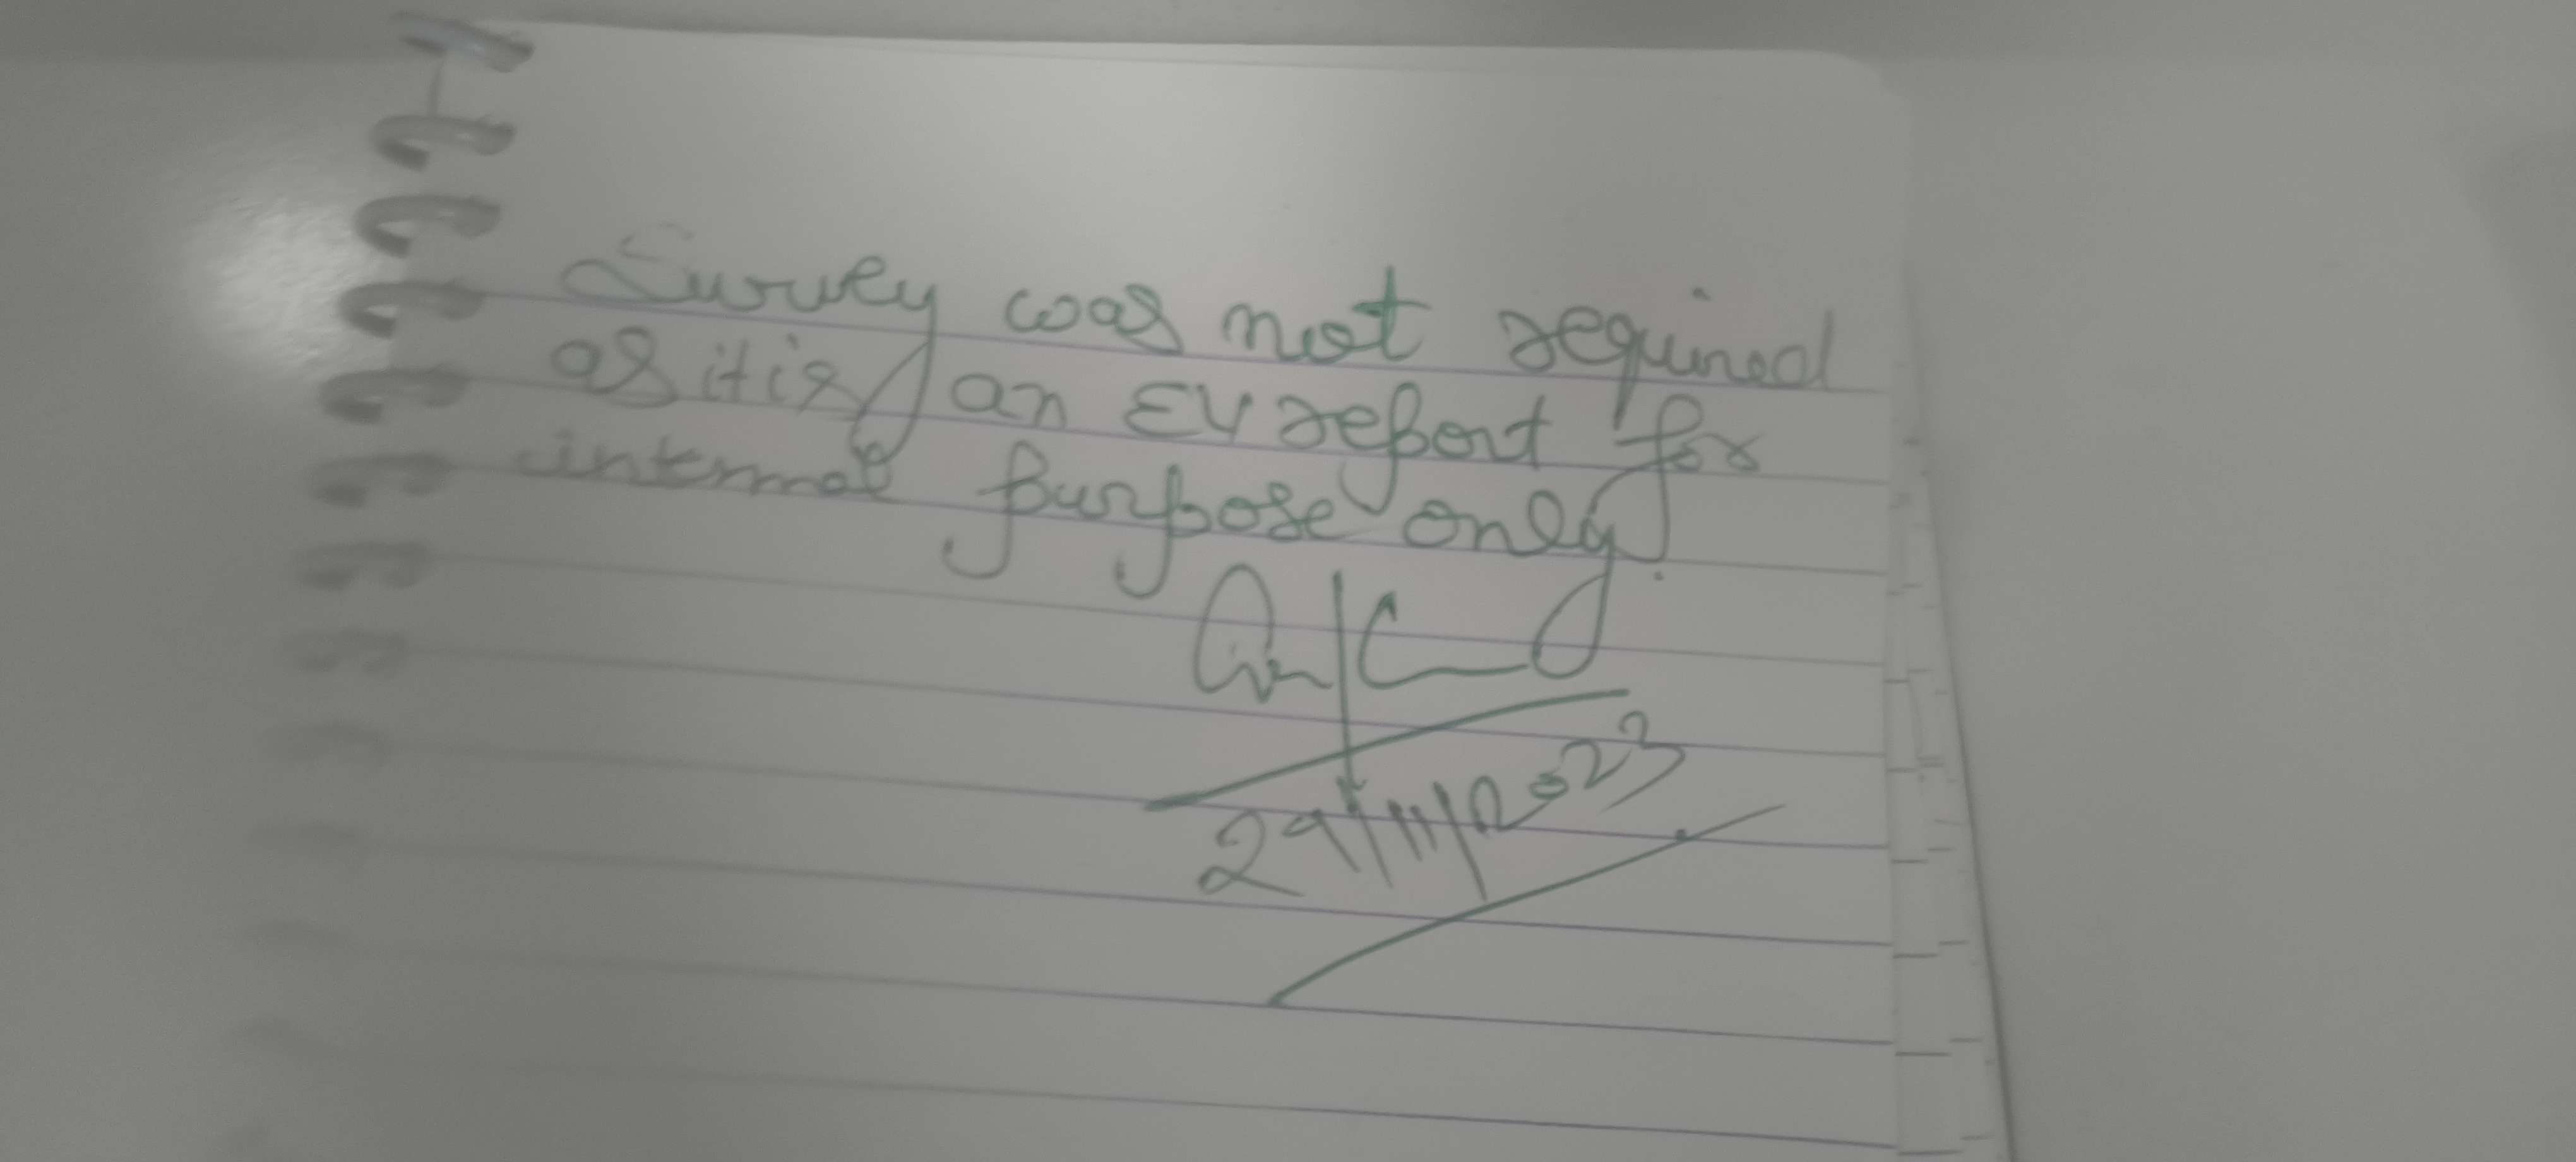 Survey was not required
as it is an EV report for
internal purpose only.
29/11/2023